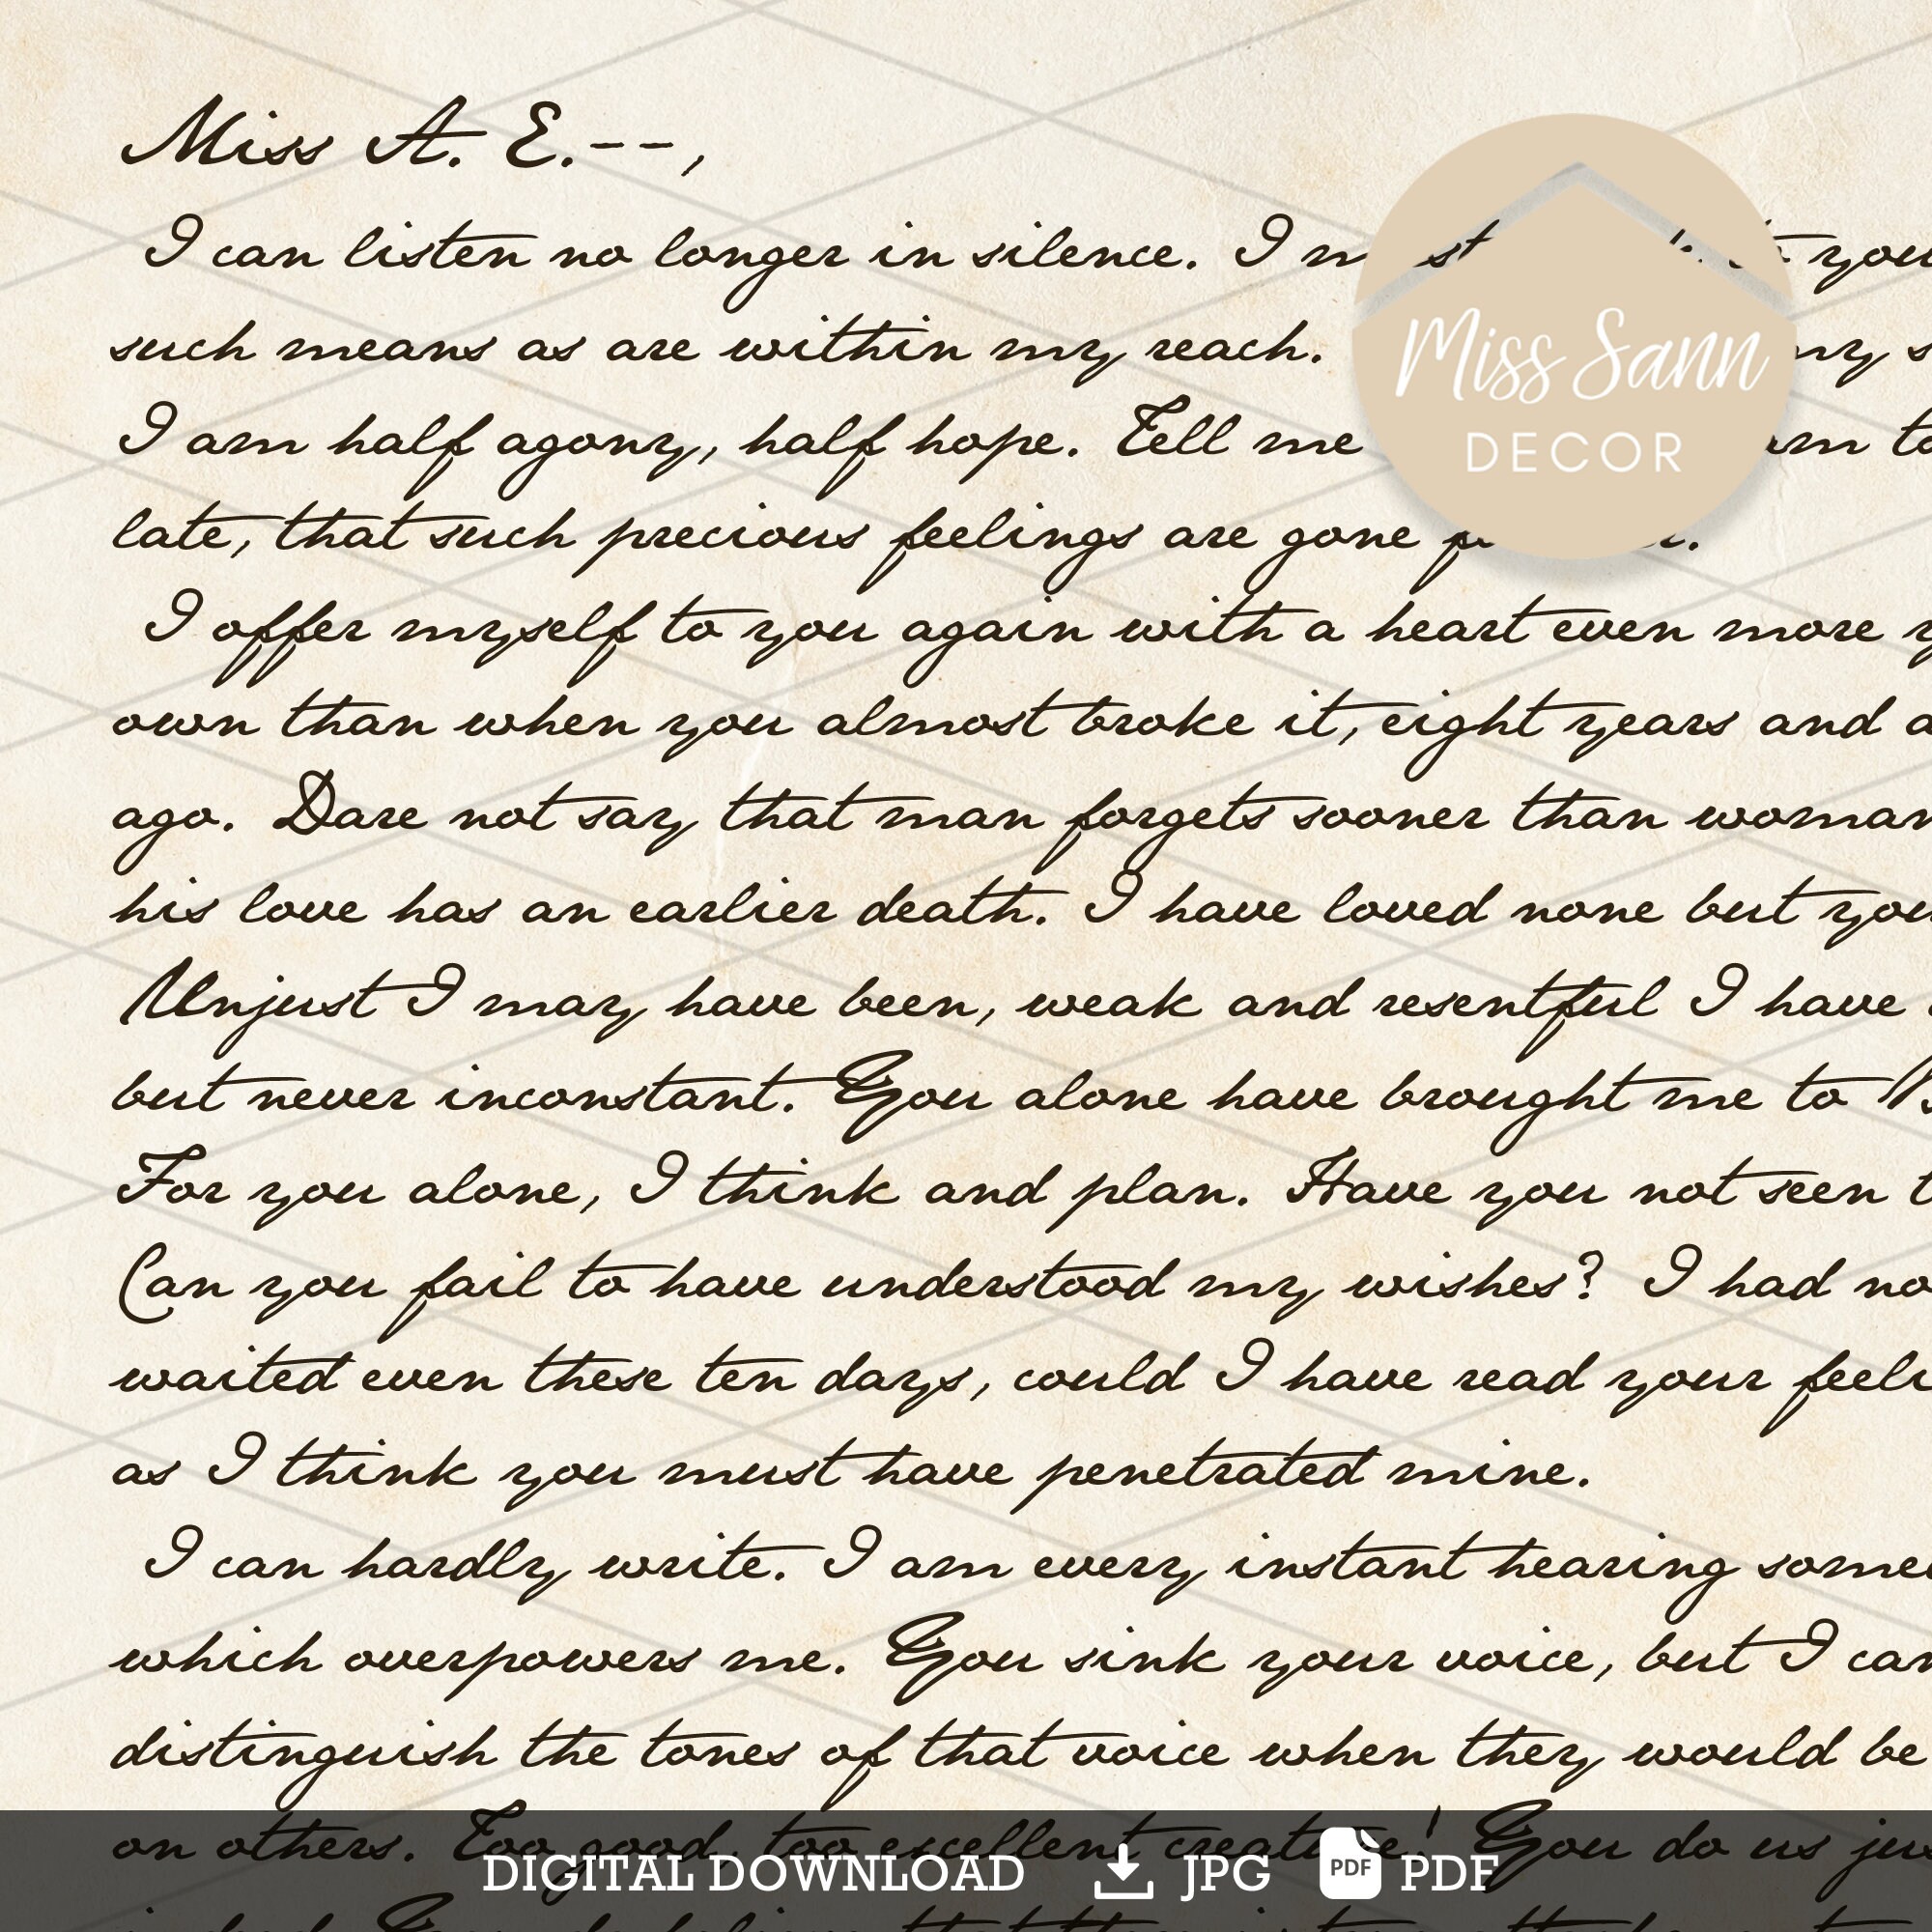 Miss A. E.--,
I can listen no longer in silence. I must you
such means as are within my reach. my
I am half agony, half hope. Tell me
late, that such precious feelings are gone
I offer myself to you again with a heart even more
own than when you almost broke it, eight years and
ago. Dare not say that man forgets sooner than woman
his love has an earlier death. I have loved none but you
Unjust I may have been, weak and resentful I have
but never inconstant. You alone have brought me to
For you alone, I think and plan. Have you not seen
Can you fail to have understood my wishes? I had
waited even these ten days, could I have read your
as I think you must have penetrated mine.
I can hardly write. I am every instant hearing
which overpowers me. You sink your voice, but I can
distinguish the tones of that voice when they would be
on others. Too good, too excellent creature! You do us
Miss Sann
DECOR
DIGITAL DOWNLOAD JPG PDF PDF